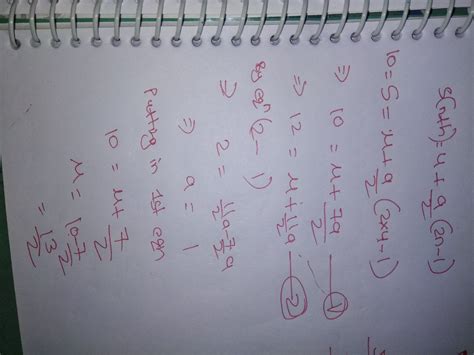 S(nth) = u + a/2 (2n-1)
10 = S = u + a/2 (2x4-1)
⇒ 10 = u + 7a/2 — 1
⇒ 12 = u + 11a/2 — 2
By eqn (2-1)
⇒ 2 = 11a-7a/2
⇒ a = 1
Putting in 1st eqn
10 = u + 7/2
u = 10-7/2
= 13/2